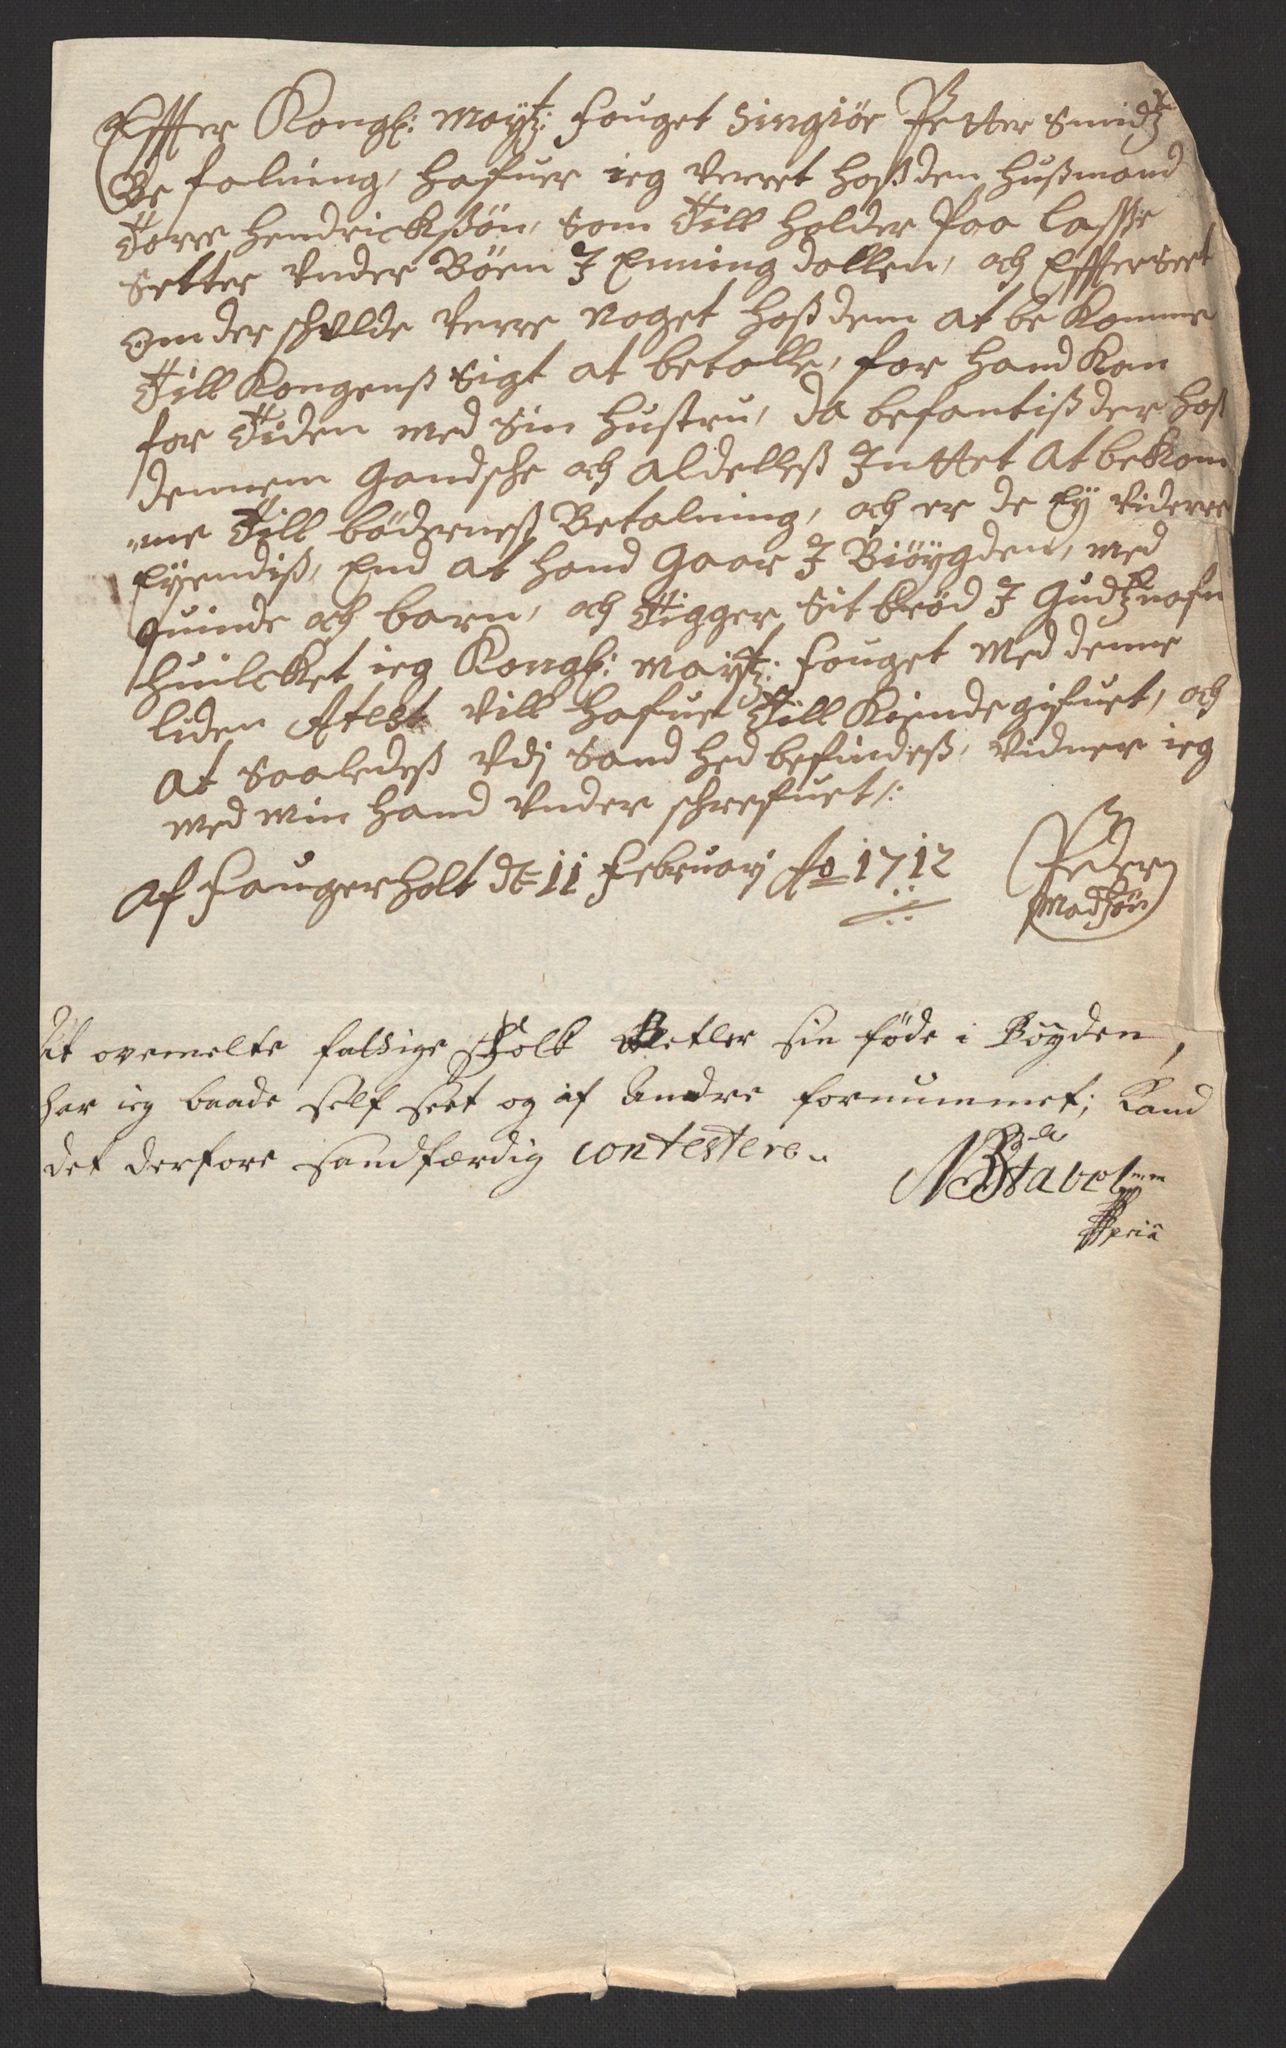 Effter Kongl: Maytz: Fouget Singiör Petter Smidtz
Befalning, Hafuer ieg Verret hoß den Hußmand
Torre Hendrickßön, Som Till holder Paa Lasse
Setter Vnder Böen J Enning dallen, och Effterseet
Om der schulde Verre noget hoß dem at be komme
Till Kongenß Sigt at betalle, for Hand Kon
for Tiden med Sin Hustru, da befantiß der hoß
dennem Gandsche och aldelleß Jnttet At bekom
me Till böderneß Betalning, och er de Ey Viderre
Eyendiß, End at Hand Gaar J Biöygden, med
quinde och barn, och Tigger Sit bröd J Gudtz nafn
Huilcket ieg Kongl: Maytz: Fouget Med denne
liden Atest Vill Hafue Till Kiende gifuet, och
At Saaledeß Vdj Sand Hed befindeß, Vidner ieg
med min Hand Vnder schrefuet /:
Af Faugerholt d: 11 Februarj Ao 1712 Peder
Madsön
At ovemelte fattige Folk Betler sin føde i Bøyden,
har ieg baade self seet og af Andre fornummet; Kand
det derfore sandfærdig contestere.
N Stabel mm